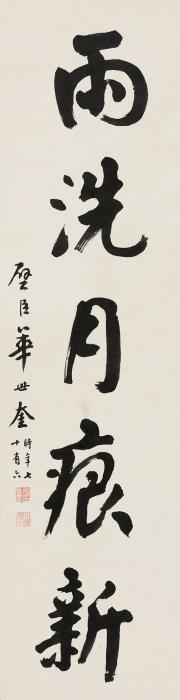 雨洗月痕新
璧臣華世奎
時年七
十有六